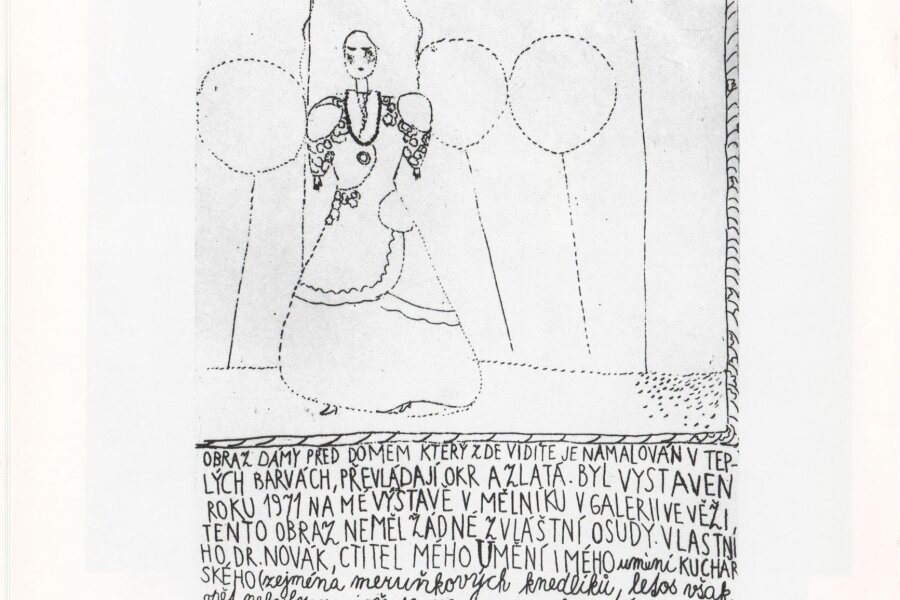 OBRAZ DÁMY PŘED DOMEM KTERÝ ZDE VIDÍTE JE NAMALOVÁN V TEP-
LÝCH BARVÁCH, PŘEVLÁDAJÍ OKR A ZLATÁ. BYL VYSTAVEN
ROKU 1971 NA MÉ VÝSTAVĚ V MĚLNÍKU V GALERII VE VĚŽI,
TENTO OBRAZ NEMĚL ŽÁDNÉ ZVLÁŠTNÍ OSUDY. VLASTNÍ
HO, DR. NOVÁK, CTITEL MÉHO UMĚNÍ I MÉHO umění KUCHAŘ
SKÉHO (zejména meruňkových knedlíků, letos však